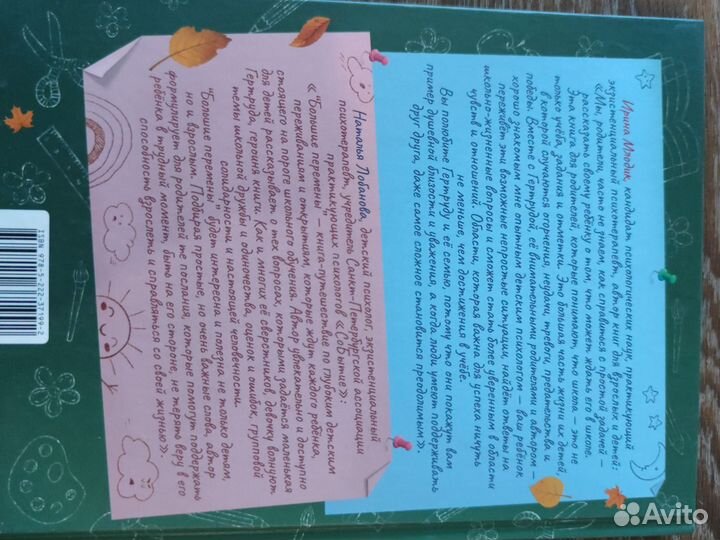 Ирина Млодик, кандидат психологических наук, практикующий
экзистенциальный психотерапевт, автор книг для взрослых и детей:
«Мы, родители, часто не знаем, как справиться с простой задачей —
рассказать своему ребёнку о том, что может ждать его в школе.
Эта книга для родителей, которые понимают, что школа — это не
только учёба, задания и отметки. Это большая часть жизни их детей,
в которой случаются огорчения, неудачи, тревоги, предательства и
победы. Вместе с Гертрудой, её внимательными родителями и автором —
хорошо знакомым мне опытным детским психологом — ваш ребёнок
переживёт эти возможные непростые ситуации, найдёт ответы на
школьно-жизненные вопросы и сможет стать более уверенным в области
чувств и отношений. Области, которая важна для успеха ничуть
не меньше, чем достижения в учёбе.
Вы полюбите Гертруду и её семью, потому что они покажут вам
пример душевной близости и уважения, а когда люди умеют поддерживать
друг друга, даже самое сложное становится преодолимым».
Наталья Лобанова, детский психолог, экзистенциальный
психотерапевт, учредитель Санкт-Петербургской ассоциации
практикующих психологов «СоБытие»:
«"Большие перемены" — книга-путешествие по глубоким детским
переживаниям и открытиям, которые ждут каждого ребёнка,
стоящего на пороге школьного обучения. Автор увлекательно и доступно
для детей рассказывает о тех вопросах, которыми задаётся маленькая
Гертруда, героиня книги. Как и многих её сверстников, девочку волнуют
темы школьной дружбы и одиночества, оценок и ошибок, групповой
солидарности и настоящей человечности.
"Большие перемены" будет интересна и полезна не только детям,
но и взрослым. Подбирая простые, но очень важные слова, автор
формулирует для родителей те послания, которые помогут поддержать
ребёнка в трудный момент, быть на его стороне, не терять веру в его
способность взрослеть и справляться со своей жизнью».
ISBN 978-5-222-37199-2
Avito